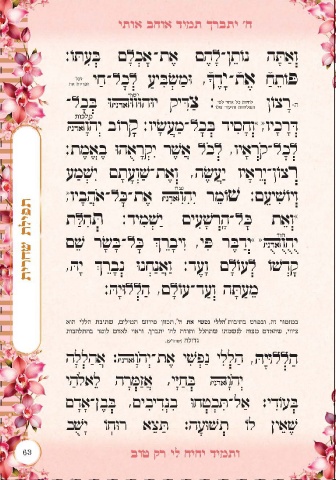 ה' יתברך תמיד אוהב אותי
וְאַתָּה נוֹתֵן־לָהֶם אֶת־אָכְלָם בְּעִתּוֹ:
פּוֹתֵחַ אֶת־יָדֶךָ, וּמַשְׂבִּיעַ לְכָל־חַי
רָצוֹן: צַדִּיק יְהֹוָה בְּכָל־
דְּרָכָיו, וְחָסִיד בְּכָל־מַעֲשָׂיו: קָרוֹב יְהֹוָה
לְכָל־קֹרְאָיו, לְכֹל אֲשֶׁר יִקְרָאֻהוּ בֶאֱמֶת:
רְצוֹן־יְרֵאָיו יַעֲשֶׂה, וְאֶת־שַׁוְעָתָם יִשְׁמַע
וְיוֹשִׁיעֵם: שׁוֹמֵר יְהֹוָה אֶת־כָּל־אֹהֲבָיו,
וְאֵת כָּל־הָרְשָׁעִים יַשְׁמִיד: תְּהִלַּת
יְהֹוָה יְדַבֶּר פִּי, וִיבָרֵךְ כָּל־בָּשָׂר שֵׁם
קָדְשׁוֹ לְעוֹלָם וָעֶד: וַאֲנַחְנוּ נְבָרֵךְ יָהּ,
מֵעַתָּה וְעַד־עוֹלָם, הַלְלוּיָהּ:
הַלְלוּיָהּ, הַלְלִי נַפְשִׁי אֶת־יְהֹוָה: אֲהַלְלָה
יְהֹוָה בְּחַיָּי, אֲזַמְּרָה לֵאלֹהַי
בְּעוֹדִי: אַל־תִּבְטְחוּ בִנְדִיבִים, בְּבֶן־אָדָם
שֶׁאֵין לוֹ תְשׁוּעָה: תֵּצֵא רוּחוֹ יָשֻׁב
ותמיד יהיה לי רק טוב
תפילת שחרית
63